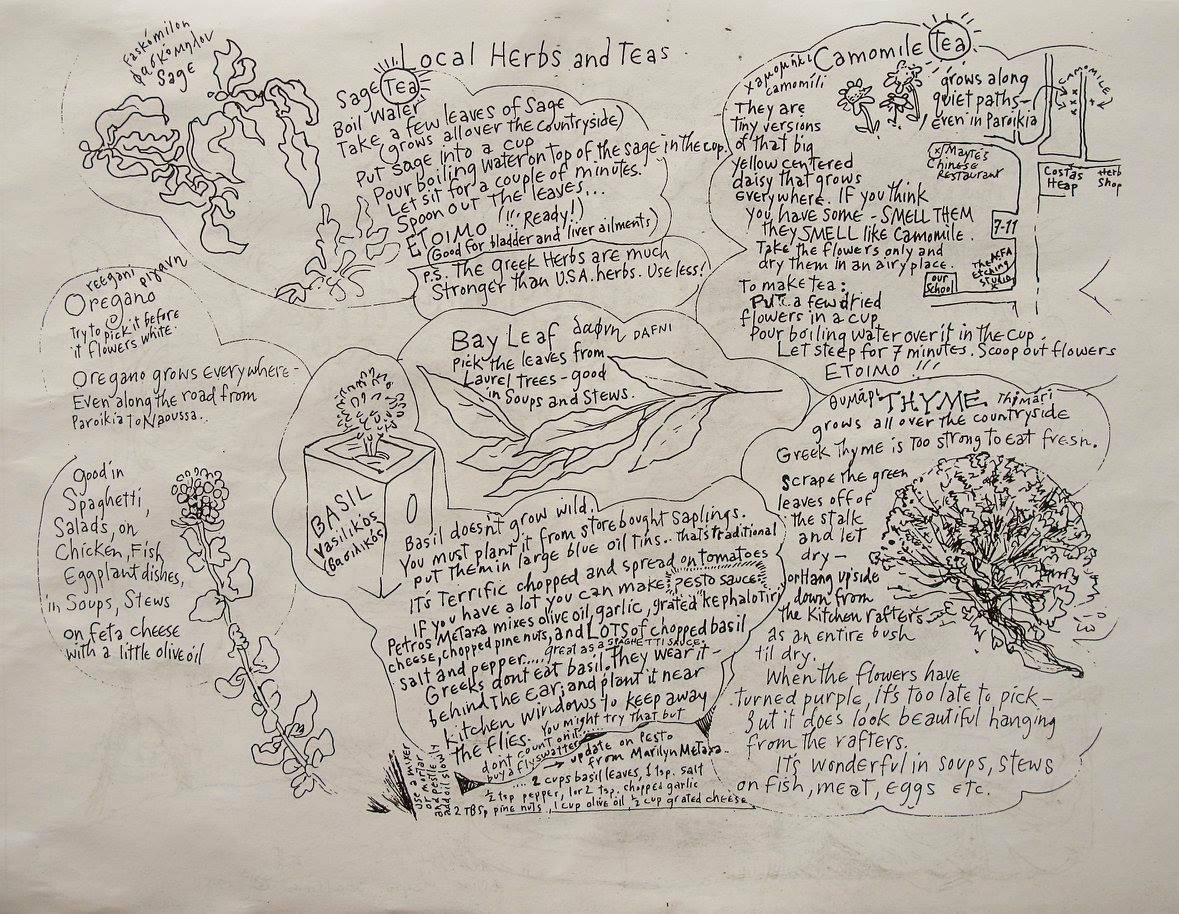 Local Herbs and Teas
Faskómilon
φασκόμηλον
Sage
Sage Tea
Boil Water
Take a few leaves of Sage
(grows all over the countryside)
Put sage into a cup
Pour boiling water on top of the sage in the cup.
Let sit for a couple of minutes.
Spoon out the leaves...
ETOIMO (!!! Ready!)
(Good for bladder and liver ailments)
P.S. The greek Herbs are much
Stronger than U.S.A. herbs. Use less!
Camomile Tea
χαμομηλι
camomíli
grows along
quiet paths-
even in Paroikia
They are
tiny versions
of that big
yellow centered
daisy that grows
everywhere. If you think
you have some - SMELL THEM
they SMELL like Camomile.
Take the flowers only and
dry them in an airy place.
To make tea:
Put a few dried
flowers in a cup
Pour boiling water over it in the cup.
Let steep for 7 minutes. Scoop out flowers
ETOIMO !!!
CAMOMILE
x Mayte's
Chinese
Restaurant
Costas
Heap
Herb
Shop
7-11
The AEFA
Etching
Studio
our
School
réegani ρίγανη
Oregano
Try to pick it before
it flowers white.
Oregano grows everywhere-
Even along the road from
Paroikia to Naoussa..
Good in
Spaghetti,
Salads, on
Chicken, Fish
Eggplant dishes,
in Soups, Stews
on feta cheese
with a little olive oil
Bay Leaf δαφνη DAFNI
Pick the leaves from
Laurel trees - good
in Soups and Stews.
BASIL
Vasilikós
(Βασιλικός)
Basil doesn't grow wild.
You must plant it from store bought saplings.
put them in large blue oil tins.. that's traditional
It's Terrific chopped and spread on tomatoes
If you have a lot you can make PESTO SAUCE
Petros Metaxa mixes olive oil, garlic, grated "kephalotiri"
cheese, chopped pine nuts, and LOTS of chopped basil
salt and pepper..... great as a SPAGHETTI SAUCE.
Greeks dont eat basil. They wear it -
behind the ear; and plant it near
kitchen windows to keep away
the flies. You might try that but
dont count on it..
buy a flyswatter
→ update on Pesto
from Marilyn Metaxa..
.... 2 cups basil leaves, 1 tsp. salt
½ tsp pepper, 1 or 2 tsp. chopped garlic
2 TBSp pine nuts, 1 cup olive oil, ½ cup grated cheese
use a mixer
or mortar
and pestle
add oil slowly
θυμάρι THYME Thimári
grows all over the countryside
Greek Thyme is too strong to eat fresh.
Scrape the green
leaves off of
the stalk
and let
dry -
or Hang upside
down from
the Kitchen rafters
as an entire bush
til dry.
When the flowers have
turned purple, it's too late to pick -
but it does look beautiful hanging
from the rafters.
It's wonderful in soups, stews
on fish, meat, eggs etc.